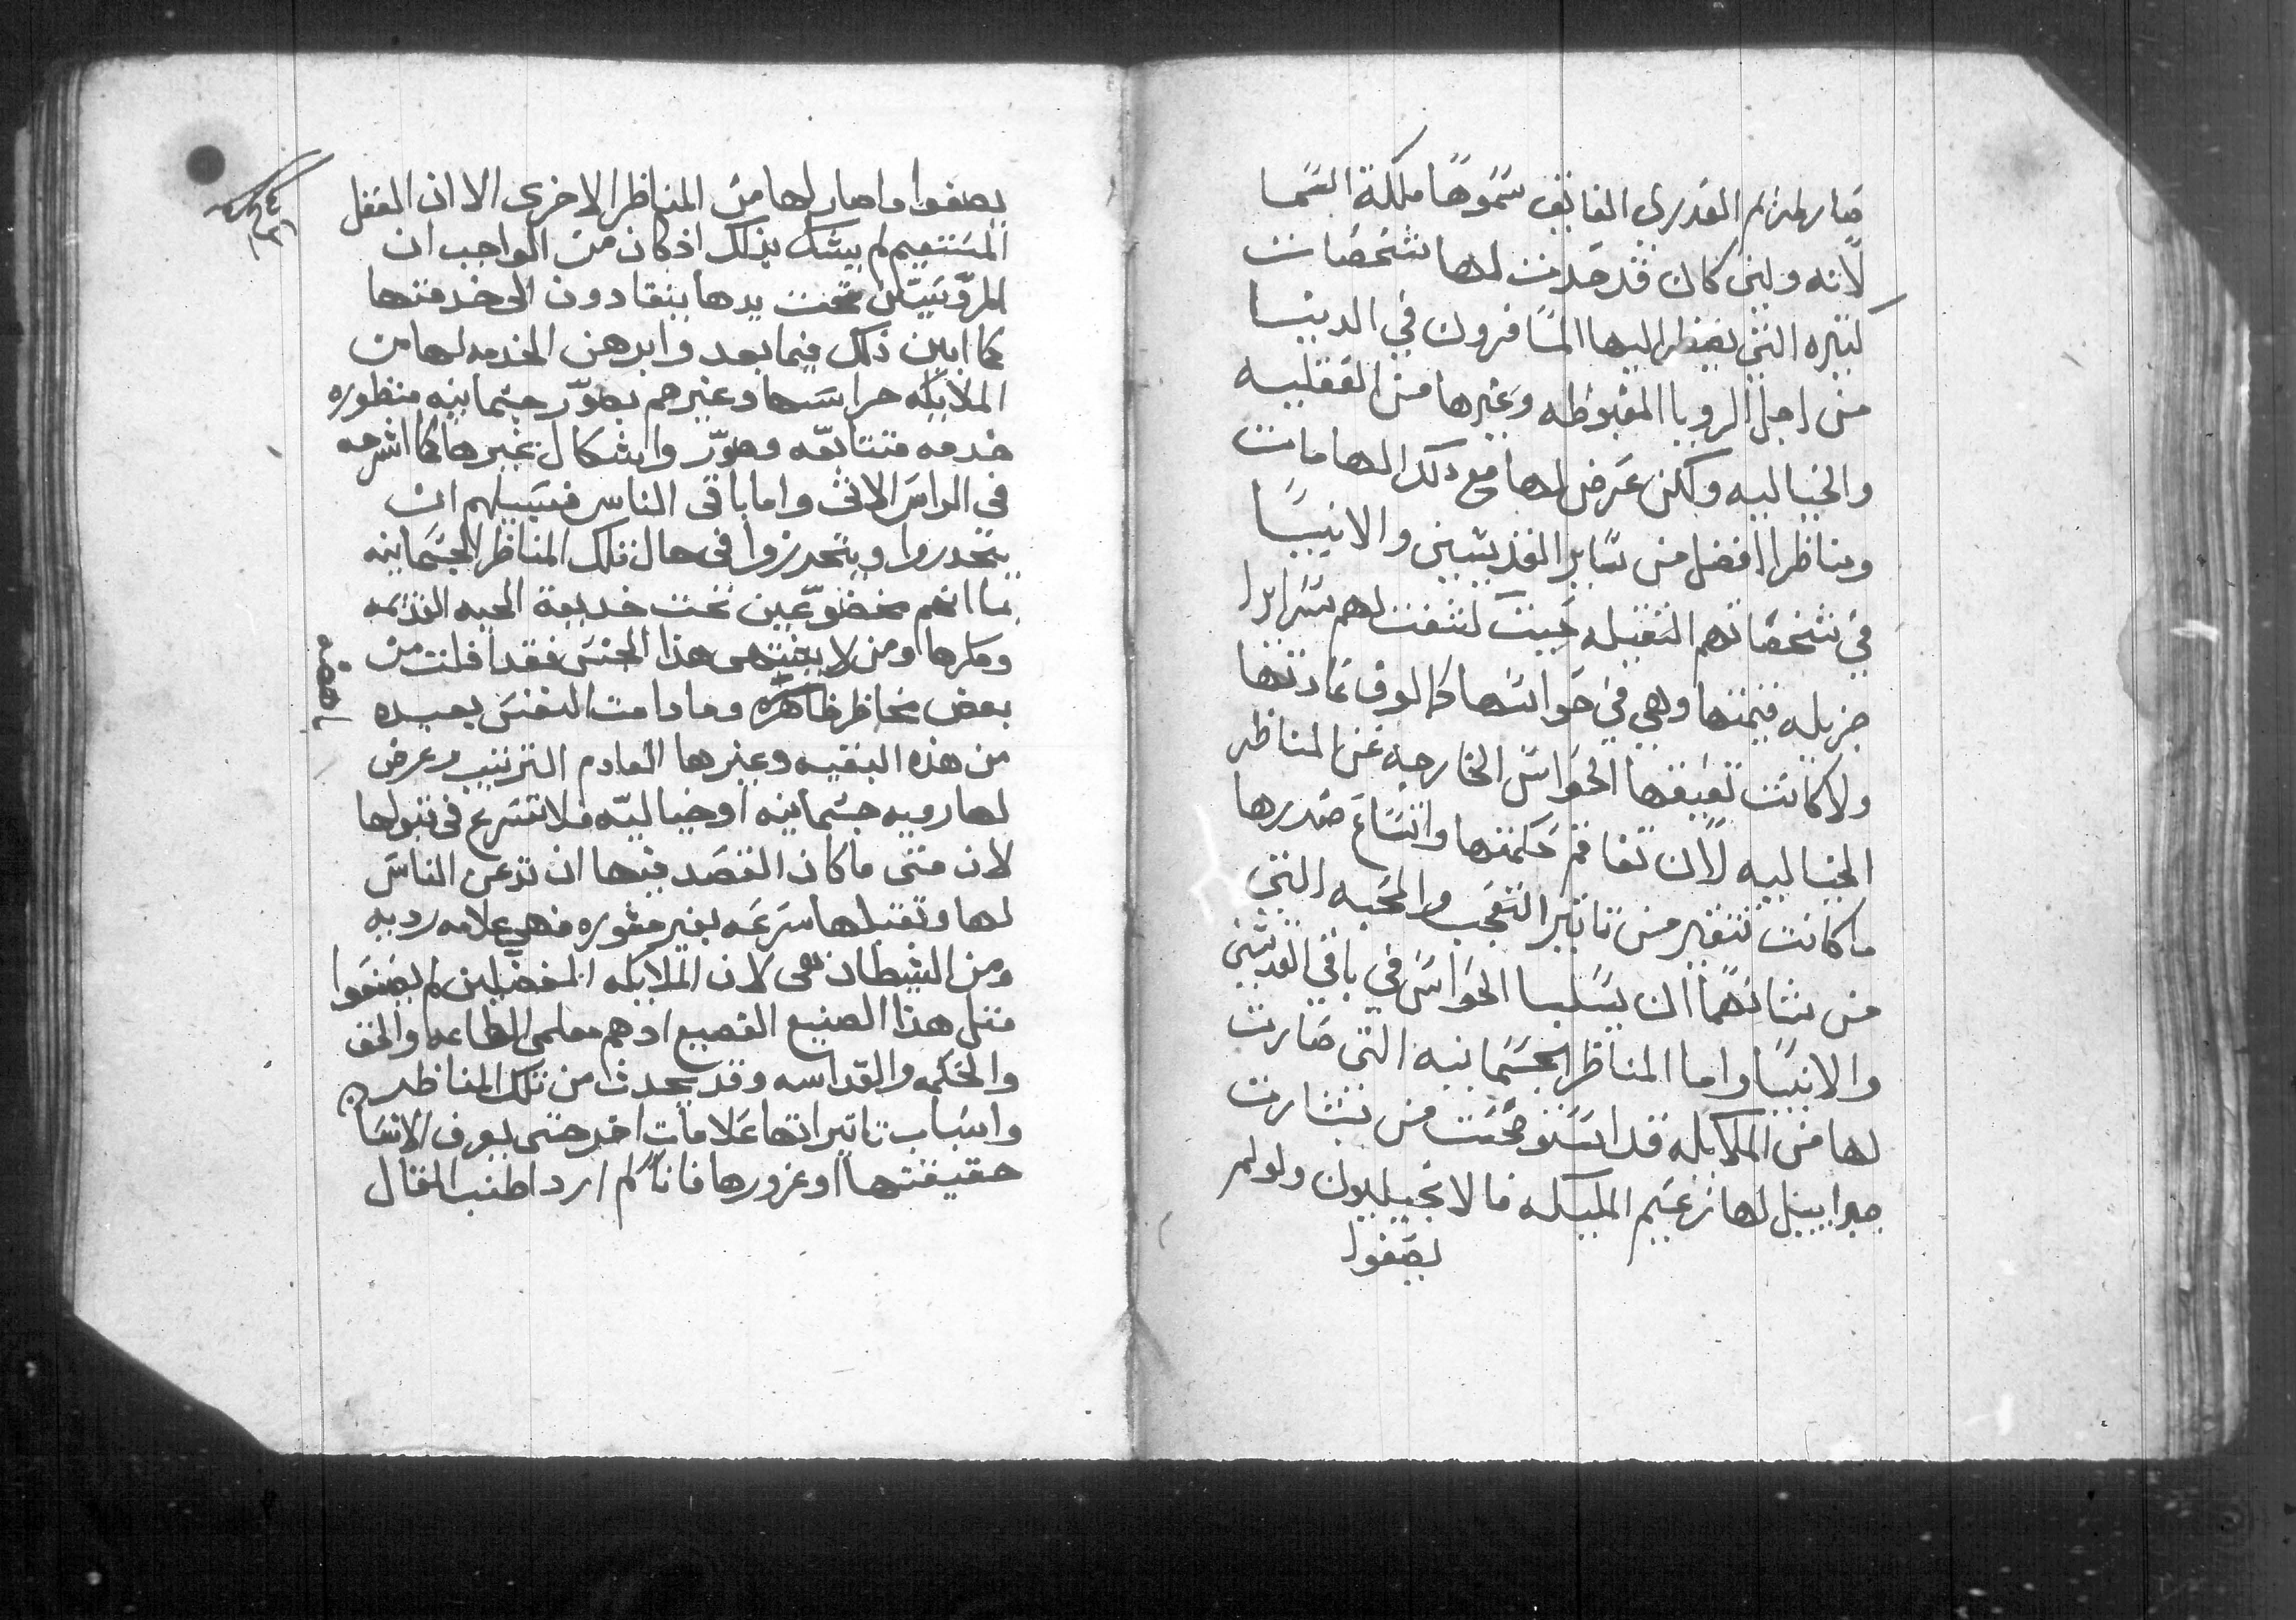 صار لمريم القديري الفايق سموها ملكة السما
لانه ولين كان قد حدثت لها شخصات
كثيره التي يضطر اليها المسافرون في الدنيا
من اجل الرويا المغبوطه وغيرها من العقليه
والخياليه ولكن عرض لها مع ذلك الهامات
ومناظر افضل من ساير القديسين والانبيا
في شخصاتهم الثقيله حيث كشفت لهم سرايرا
جزيله قيمتها وهي في حواسها كالوف عادتها
ولا كانت تعيقها الحواس الخارجه عن المناظر
الخياليه لان تفاقم حكمتها واتساع صدرها
ما كانت تتغير من تاثير التعجب والمحبه التي
من شانهما ان يسلبا الحواس في باقي القديسين
والانبيا واما المناظر الجسمانيه التي صارت
لها من الملايكه قد استوضحت من بشارت
جبراييل لها زعيم الملايكه فالانجيليون ولولم
يصفوا
يصفوا ما صار لها من المناظر الاخرى الا ان العقل
المستقيم لم يشك بذلك اذ كان من الواجب ان
المروسين تحت يدها ينقادون الى خدمتها
كما ابين ذلك فيما بعد وابرهن الخدمه لها من
الملايكه حراسها وغيرهم بصور جسمانيه منظوره
خدمه متتابعه وصور واشكال غيرها كما اشرحه
في الراس الاتي واما باقي الناس فسبيلهم ان
يتحدروا ويتحرزوا في حال تلك المناظر الجسمانيه
بما انهم مخضوعين تحت خديعة الحيه القديمه
ومكرها ومن لا يشتهى هذا الجنس فقد افلت من
بعض مخاطر ظاهره وما دامت النفس بعيده
من هذه البغيه وغيرها العادم الترتيب وعرض
لها رويه جسمانيه او خياليه فلا تتسرع في قبولها
لان متى ما كان القصد فيها ان تدعن الناس
لها وتقبلها سرعه بغير مشوره فهي علامه رديه
ومن الشيطان هي لان الملايكه المفضلين لم يصنعوا
مثل هذا الصنيع القبيح اذ هم معلمي الطاعه والحق
والحكمه والقداسه وقد يحدث من تلك المناظر
واسباب تاثيراتها علامات اخر حتى يعرف الانسان
حقيقتها او غرورها فانا لم ارد اطنب المقال